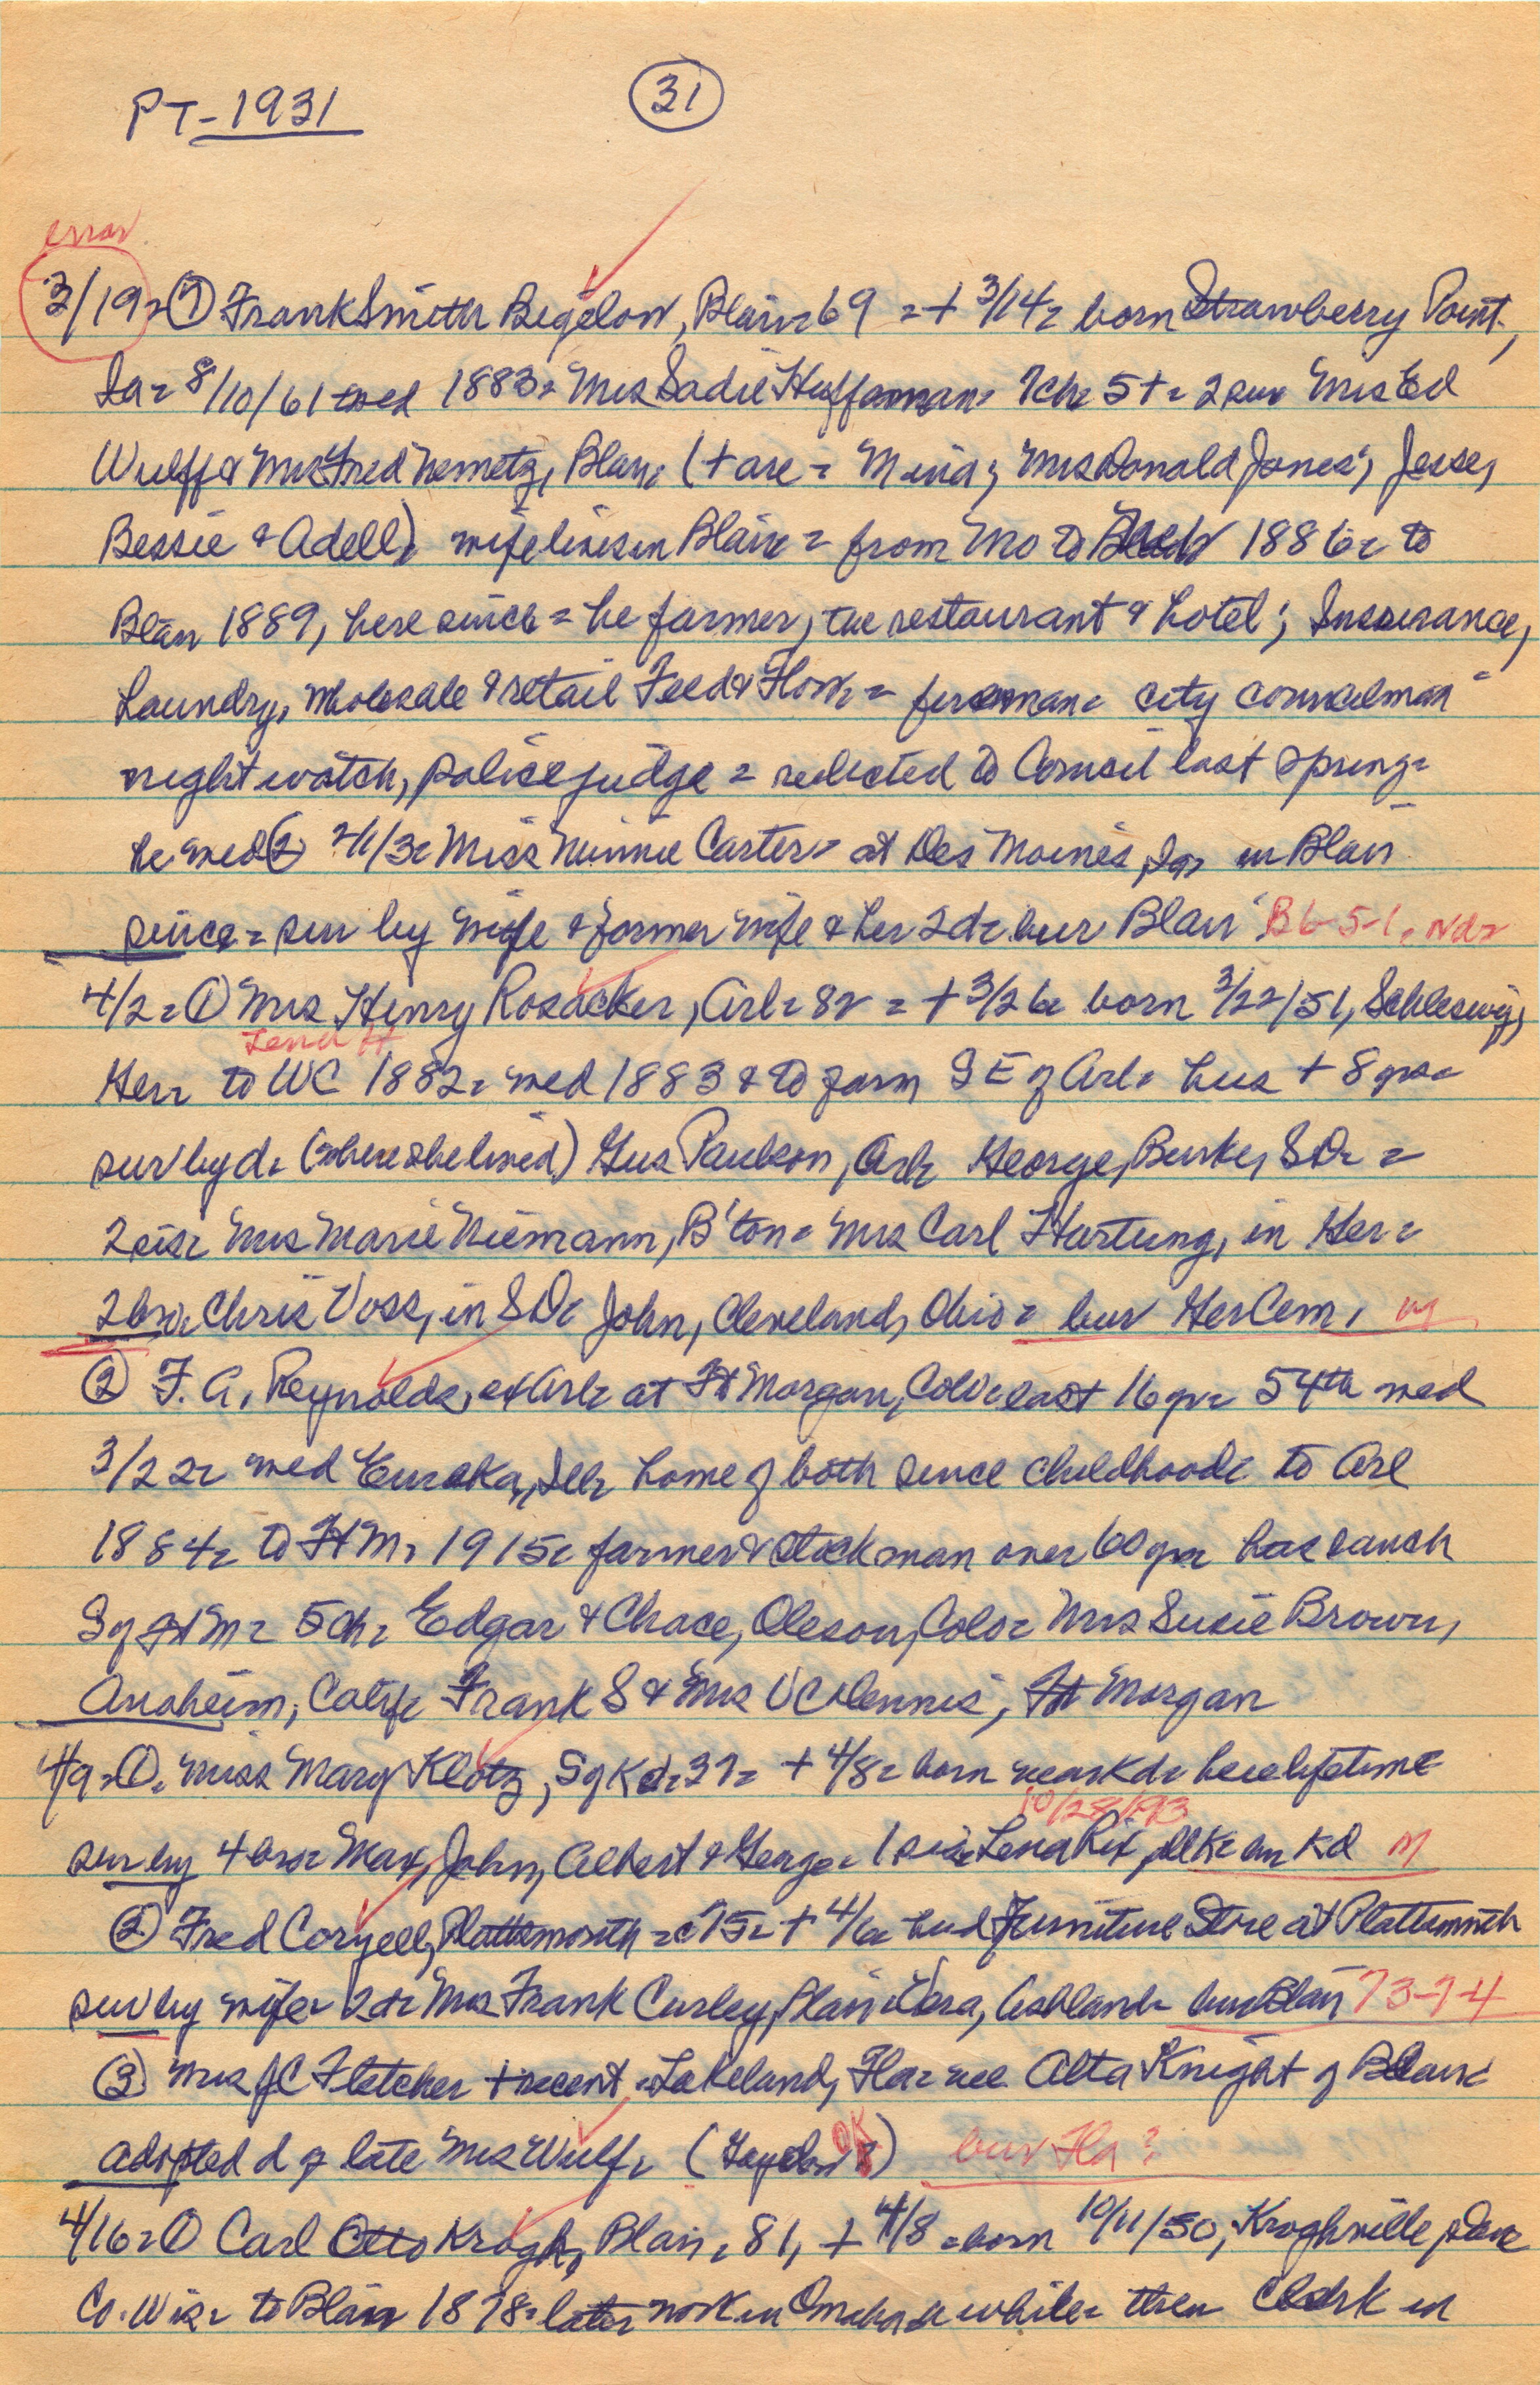 PT-1931 31
error
3/19= 7 Frank Smith Bigelow, Blair= 69 =+ 3/14= born Strawberry Point,
Ia= 8/10/61 wed 1883= Mrs Sadie Huffman= 7ch= 5+= 2 sur Mrs Ed
Wulff & Mrs Fred Nemetz, Blair, (+ are = Mrs Donald Jones; Jesse,
Bessie & Adell) wife lives in Blair = from Mo to 1886= to
Blair 1889, here since = he farmer, the restaurant & hotel; Insurance,
Laundry, wholesale & retail Feed & Flour = fireman= city councilman
night watch, police judge = reelected to Council last spring=
he wed (2) 2/1/3= Miss Minnie Carter= at Des Moines, Ia= in Blair
since= sur by wife & former wife & her 2d= bur Blair B6-5-1, Nd=
4/2= 1 Mrs Henry Rosacker, Arl= 82 = + 3/26= born 3/22/51, Schleswig,
Lena H
Ger= to WC 1882= wed 1883 & to farm SE of Arl= hus + 8 yrs=
sur by d= (where she lived) Gus Paulson, Arl= George, Burke, SD= =
2 sis= Mrs Marie Niemann, B'ton= Mrs Carl Hartung, in Ger=
2 bro= Chris Voss, in SD= John, Cleveland, Ohio= bur Ger Cem, M
2 F. A. Reynolds, ex Arl= at Ft Morgan, Colo= last 16 yr= 54th wed
3/22= wed Eureka, Ill= home of both since childhood= to Arl
1884= to Ft M, 1915= farmer & stockman over 60 yr= has ranch
S of Ft M= 5ch= Edgar & Chace, Oleson, Colo= Mrs Susie Brown,
Anaheim, Calif= Frank S & Mrs VC Dennis, Ft Morgan
4/9= 1= Miss Mary Klotz, S of Kd= 37= + 4/8= born near Kd= here lifetime
10/28/93
sur by 4 bro= Max, John, Albert & George= 1 sis= Lena Rix, all K= bur Kd M
2 Fred Coryell, Plattsmouth =c75= + 4/6= had Furniture Store at Plattsmouth
sur by wife= 2d= Mrs Frank Curley, Blair= Vera, Ashland= bur Blair 73-7-4
3 Mrs JC Fletcher + recent= Lakeland, Fla= nee Alta Knight of Blair=
adopted d of late Mrs Wulf= OK bur Fla?
4/16= 1 Carl Otto Krogh, Blair, 81, + 4/8 =born 10/11/50, Kroghville, Dane
Co. Wis= to Blair 1878= later work in Omaha a while= then clerk in